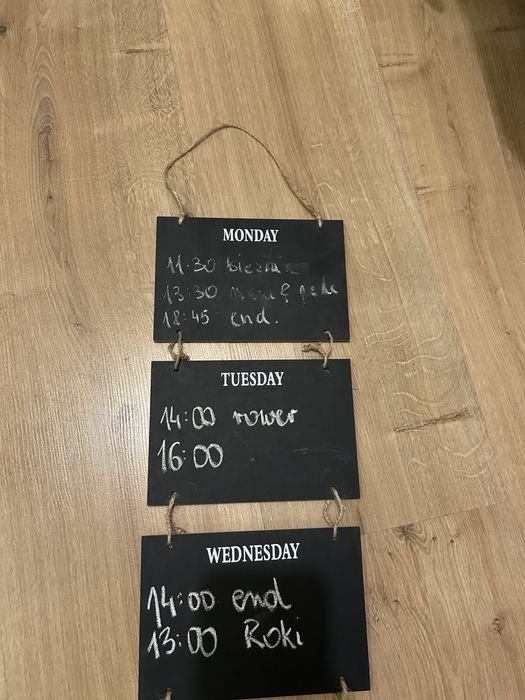 MONDAY
11:30
13:30 mani & pedi
18:45 end.
TUESDAY
14:00 rower
16:00
WEDNESDAY
14:00 end
13:00 Roki